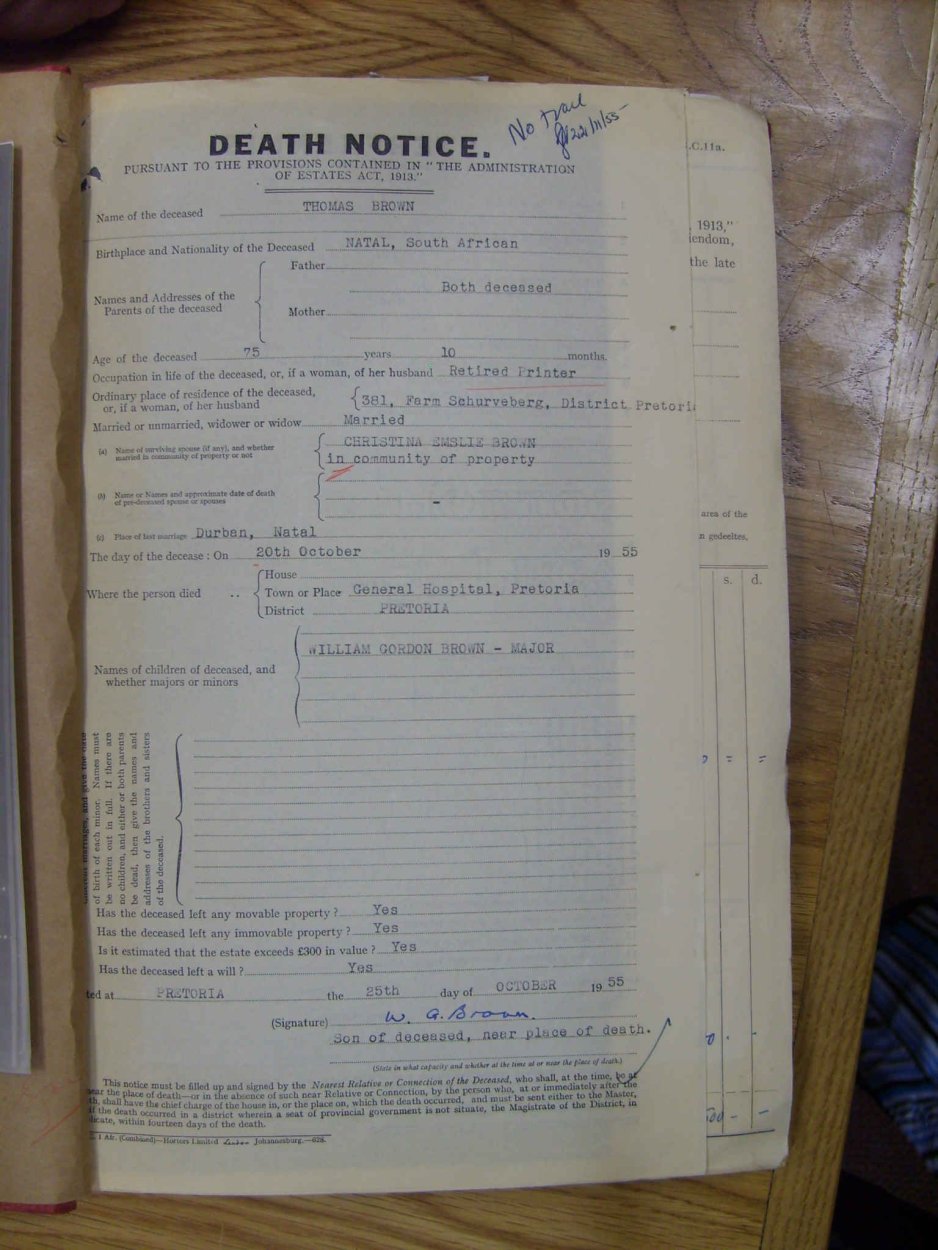 No trace
22/11/55
DEATH NOTICE.
PURSUANT TO THE PROVISIONS CONTAINED IN "THE ADMINISTRATION
OF ESTATES ACT, 1913."
Name of the deceased THOMAS BROWN
Birthplace and Nationality of the Deceased NATAL, South African
Names and Addresses of the
Parents of the deceased
Father
Both deceased
Mother
Age of the deceased 75 years 10 months.
Occupation in life of the deceased, or, if a woman, of her husband Retired Printer
Ordinary place of residence of the deceased,
or, if a woman, of her husband
381, Farm Schurveberg, District Pretori
Married or unmarried, widower or widow Married
(a) Name of surviving spouse (if any), and whether
married in community of property or not
CHRISTINA EMSLIE BROWN
in community of property
(b) Name or Names and approximate date of death
of pre-deceased spouse or spouses
-
(c) Place of last marriage Durban, Natal
The day of the decease : On 20th October 19 55
Where the person died ..
House
Town or Place General Hospital, Pretoria
District PRETORIA
Names of children of deceased, and
whether majors or minors
WILLIAM GORDON BROWN - MAJOR
of birth of each minor. Names must
be written out in full. If there are
no children, and either or both parents
be dead, then give the names and
addresses of the brothers and sisters
of the deceased.
Has the deceased left any movable property ? Yes
Has the deceased left any immovable property ? Yes
Is it estimated that the estate exceeds £300 in value ? Yes
Has the deceased left a will ? Yes
ted at PRETORIA the 25th day of OCTOBER 19 55
(Signature) W. G. Brown.
Son of deceased, near place of death.
(State in what capacity and whether at the time at or near the place of death.)
This notice must be filled up and signed by the Nearest Relative or Connection of the Deceased, who shall, at the time, be at
near the place of death—or in the absence of such near Relative or Connection, by the person who, at or immediately after the
th, shall have the chief charge of the house in, or the place on, which the death occurred, and must be sent either to the Master,
if the death occurred in a district wherein a seat of provincial government is not situate, the Magistrate of the District, in
licate, within fourteen days of the death.
1 Afr. (Combined)—Hortors Limited Johannesburg.—628.
.C.11a.
, 1913,"
iendom,
the late
area of the
n gedeeltes.
s. d.
= =